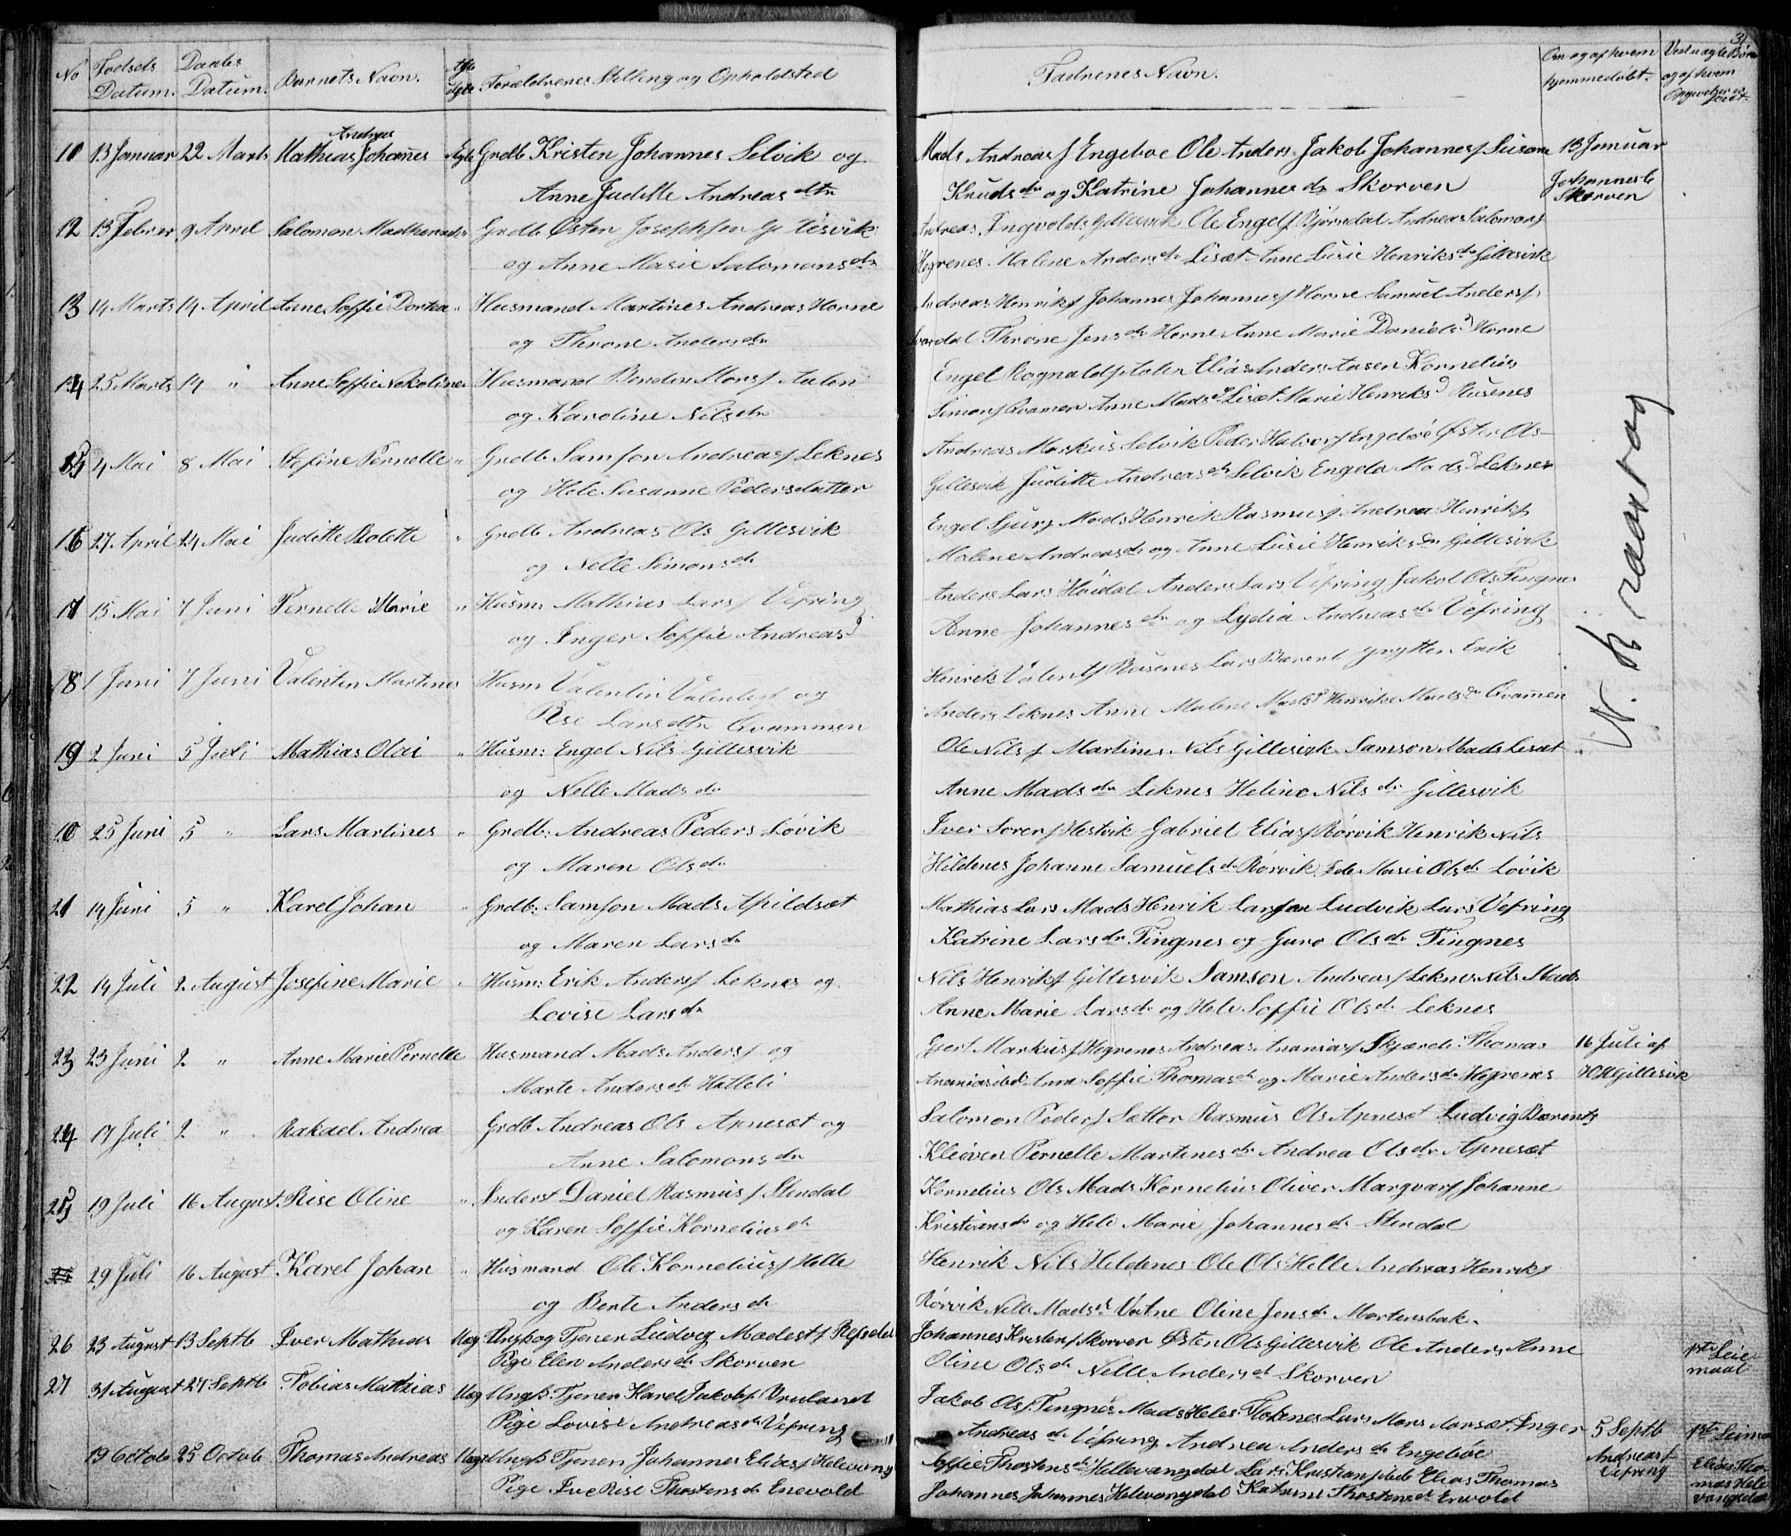 31
No Fødsels Datum. Daabs Datum. Barnets Navn. Forældrenes Stilling og Opholdsted
Fadrenes Navn. Om og af hvem hjemmedøbt.
11 13 Januar 22 Marts Mathias Andreas Johannes Ægte Grdb Kristen Johannes Selvik og
Anne Juditte Andreas dtr
Mads Andreas f Engeboe Ole Anders Jakob Johannes f Susane 13 Januar
Knuds dr og Katrine Johannes dr Skorven Johannes Skorven
12 13 Febrer 9 April Salomon Grdb Østen Joseph sen Gillesvik
og Anne Marie Salomons dr
Andreas Ingvolds Gillesvik Ole Engels Bjørndal Andreas Salomon f
Høgrenes Malene Anders dr Lisæt Anne Lusie Henriks dr Gillesvik
13 14 Marts 14 April Anne Soffie Dortea " Husmand Martines Andreas Horne
og Throne Anders dr
Andreas Henrik f Johannes Johannes f Horne Samuel Anders f
Throne Jens dr Horne Anne Marie Daniels d Horne
14 25 Marts 14 " Anne Soffie Nekoline Husmand Mons f Aalen
og Karoline Nils dr
Engel Rognald f Aalen Elias Anders Aasen Kornelius
Simon f Qvamen Anne Mads d Lisæt Marie Henriks d Rusenes
15 4 Mai 8 Mai Stefine Pernelle " Grdb Samson Andreas f Leknes
og Hele Susanne Pedersdatter
Andreas Markus Selvik Peder Halvor f Engeboe Østen Ols
Gillesvik Juditte Andreas dr Selvik Engele Mads d Leknes
16 27 April 24 Mai Juditte Bolette " Grdb Andreas Ols Gillesvik
og Nelle Simons dr
Engel Sjur f Mads Henrik Rasmus f Andreas Henrik f
Malene Andreas dr og Anne Lusie Henriks dr Gillesvik
17 15 Mai 7 Juni Pernelle Marie " Husm: Mathias Lars f Vefring
og Inger Soffie Andreas d
Anders Lars Høidal Anders Lars Vefring Jakob Ols Tingnes
Anne Johannes dr og Lydia Andreas dr Vefring
18 1 Juni 7 Juni Valentin Martines Husm Valentin Valentin f og
Rise Lars dtr Qvammen
Henrik Valent f Rusenes Lars Barent Erik
Anders Leknes Anne Malene Mads d Henrike Mads dr Qvammen
19 2 Juni 5 Juli Mathias Olai " Husm: Engel Nils Gillesvik
og Nelle Mads dr
Ole Nils f Martines Nils Gillesvik Samson Mads Lisæt
Anne Mads dr Leknes Heline Nils dr Gillesvik
10 25 Juni 5 " Lars Martines " Grdb: Andreas Peders Løvik
og Maren Ols dr
Iver Soren f Hestvik Gabriel Elias f Rørvik Henrik Nils
Hildenes Johanne Samuels dr Rørvik Ede Marie Ols dr Løvik
21 14 Juni 5 " Karel Johan " Grdb: Samson Mads Apildsæt
og Maren Lars dr
Mathias Lars Mads Henrik Larsen Ludvik Lars Vefring
Katrine Lars dr Tingnes og Guro Ols dr Tingnes
22 14 Juli 2 August Josefine Marie " Husm: Erik Anders f Leknes og
Lovise Lars dr
Nils Henrik f Gillesvik Samson Andreas f Leknes Nils Mads
Anne Marie Lars dr og Hele Soffie Ols dr Leknes
23 23 Juni 2 " Anne Marie Pernelle Husmand Mads Anders f og
Marte Anders dr Hatleli
Gjert Markus f Høgrenes Andreas Ananias f Skjærde Thomas 16 Juli af
Ananias ibd Anne Soffie Thomas dr og Marie Anders dr Høgrenes H H Gillesvik
24 17 Juli 2 " Rakael Andrea Grdb Andreas Ols Apnesæt og
Anne Salomons dr
Salomon Peder f Setter Rasmus Ols Apnesæt Ludvig Barents
Kleiven Pernelle Martines dr Andrea Ols dr Apnesæt
25 19 Juli 16 August Rise Oline " Inderst Daniel Rasmus f Stendal
og Karen Soffie Kornelius dr
Kornelius Ols Mads Kornelius Oliver Marqvar f Johanne
Kristians dr og Hele Marie Johannes dr Stendal
29 Juli 16 August Karel Johan " Husmand Ole Kornelius f Helle
og Berte Anders dr
Henrik Nils Hildenes Ole Ols Helle Andreas Henrik f
Rørvik Nelle Mads d Vatne Oline Jens dr Mortensbak.
26 23 August 13 Septb Iver Mathias Uæg Ungk og Tjener Ludvig Modest f Refsdal
Pige Elen Anders dr Skorven
Johannes Kristen f Skorven Østen Ols Gillesvik Ole Anders Anne
Oline Ols dr Nelle Anders dr Skorven
1ste Leiemaal
27 31 August 27 Septb Tobias Mathias Uæg Ungk Tjener Karel Jakob f Vruland
Pige Lovise Andreas dr Vefring
Jakob Ols f Tingnes Mads Heles Lars Mons Aarsæt Inger 5 Septb 1ste Leiem
Andreas dr Vefring Andrea Anders dr Engeboe Andreas f Vefring
19 Octob 25 Octob Thomas Andreas Uægt Ungk Tjener Johannes Elias f Helevang
Pige Ive Rise Thostens dr Enevold
Soffie Thostens dr Hellevangdal Lars Kristian f ibd Elias Thomas
Johannes Johannes Helevangdal Katrine Thostens dr Envold
Elias Thomas Helevangdal
N. Kraavaag